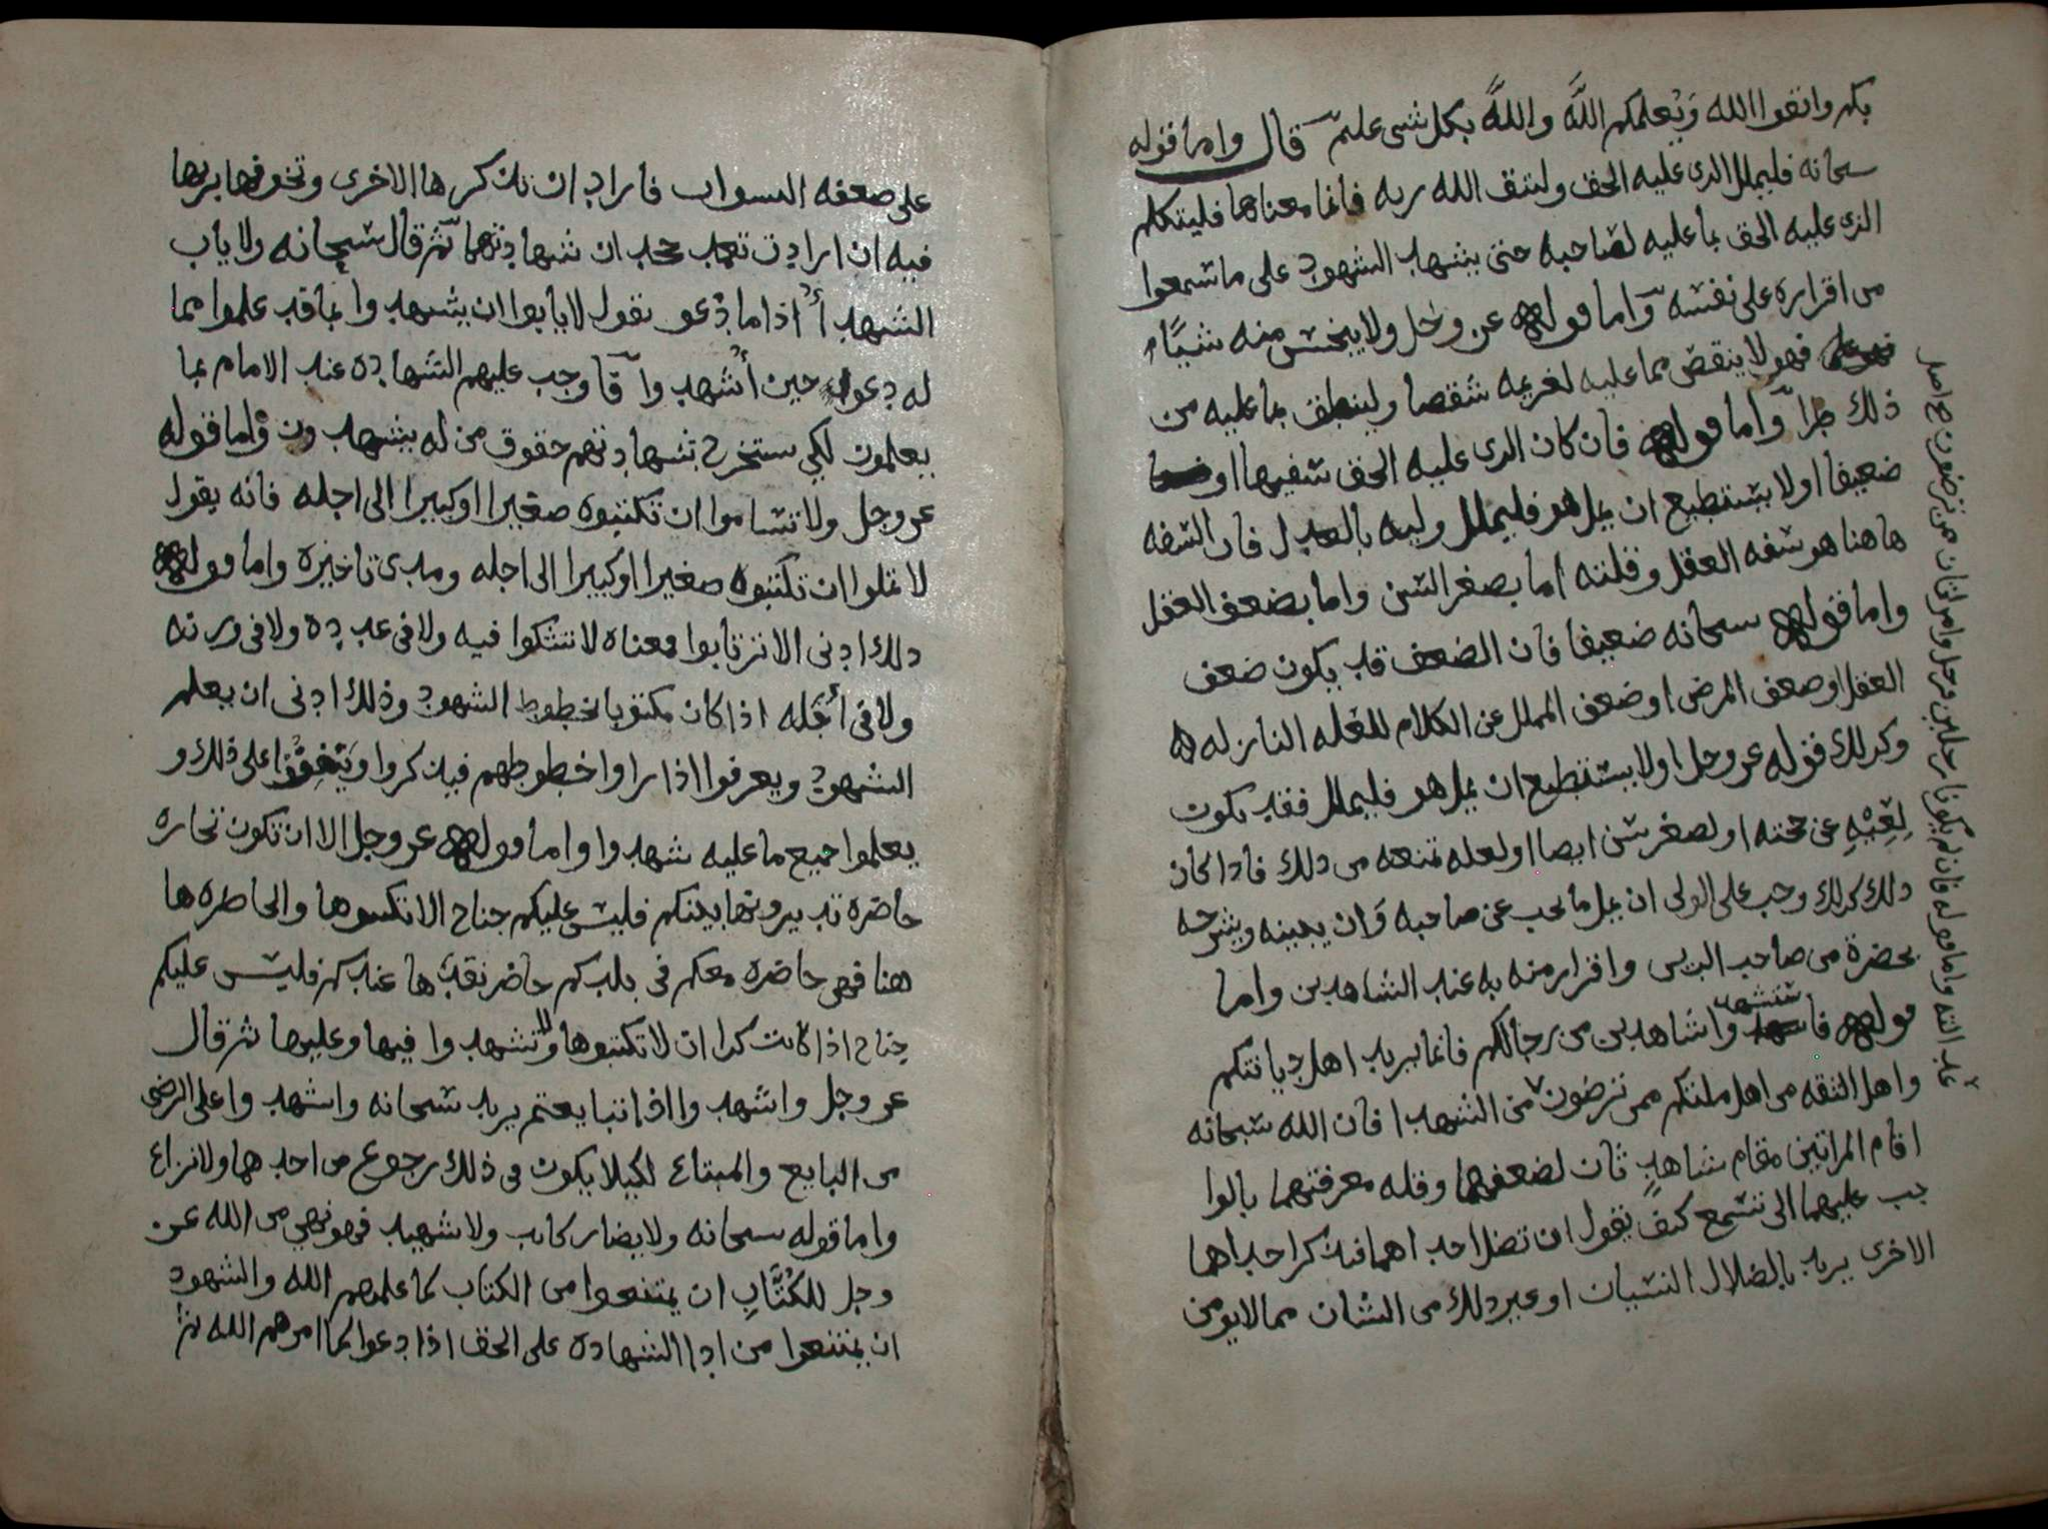 بكم واتقوا الله وَيُعلمكم اللَّه واللَّه بكل شي عليم قال واما قوله
سبحانه فليملل الذى عليه الحق وليتق الله ربه فانما معناها فليتكلم
الذى عليه الحق بما عليه لصاحبه حتى يشهد الشهود على ما سمعوا
من اقراره على نفسه واما قوله عز وجل ولا يبخس منه شيًا
فهو لا ينقص مما عليه لغريمه شقصا ولينطق بما عليه من
ذلك طرا واما قوله فان كان الذى عليه الحق سفيها او
ضعيفا او لا يستطيع ان يمل هو فليملل وليه بالعدل فان السفه
هاهنا هو سفه العقل وقلته اما بصغر السن واما بضعف العقل
واما قوله سبحانه ضعيفا فان الضعف قد يكون ضعف
العقل او ضعف المرض او ضعف الممل عن الكلام للعله النازله
وكذلك قوله عز وجل او لا يستطيع ان يمل هو فليملل فقد يكون
لِعِيْهِ عن حجته او لصغر سن ايضا او لعله تمنعه من ذلك فاذا كان
ذلك كذلك وجب على الولى ان يمل ما يجب عن صاحبه وان يبينه ويشرحه
بحضرة من صاحب الدين واقرار منه به عند الشاهدين واما
قوله فاستشهدوا شاهدين من رجالكم فانما يريد اهل ديانتكم
واهل الثقه من اهل ملتكم ممن ترضون من الشهدا فان الله سبحانه
اقام المراتين مقام شاهد ثان لضعفهما وقله معرفتهما بالوا
جب عليهما الى تسمع كيف يقول ان تضل احداهما فتذكر احداهما
الاخرى يريد بالضلال النسيان او غير ذلك من الشان مما لا يومن
فان لم يكونا رجلين فرجل وامراتان ممن ترضون
على ضعفه النسوان فاراد ان تذكرها الاخرى وتخوفها بربها
فيه ان ارادت تعمد جحدان شهادتهما ثم قال سبحانه ولا ياب
الشهدأ اذا ما دُعو يقول لا يابوا ان يشهدوا بما قد علموا مما
له دعوا حين أُشهدوا فاوجب عليهم الشهاده عند الامام بما
يعلمون لكي يستخرج بشهادتهم حقوق من له يشهدون واما قوله
عز وجل ولا تساموا ان تكتبوه صغيرا او كبيرا الى اجله فانه يقول
لا تملوا ان تكتبوه صغيرا او كبيرا الى اجله ومدى تاخيره واما قوله
ذلك ادنى الا ترتابوا فمعناه لا تشكوا فيه ولا فى عدده ولا فى وزنه
ولا فى أجَله اذا كان مكتوبا بخطوط الشهود وذلك ادنى ان يعلم
الشهود ويعرفوا اذا راوا خطوطهم فيذكروا ويتفقوا على ذلك و
يعلموا جميع ما عليه شهدوا واما قوله عز وجل الا ان تكون تجاره
حاضره تديرونها بينكم فليس عليكم جناح الا تكتبوها والحاضره ها
هنا فهى حاضره معكم فى بلدكم حاضر نقدُها عندكم فليس عليكم
جناح اذا كانت كذا ان لا تكتبوها ولا تشهدوا فيها وعليها ثم قال
عز وجل واشهدوا اذا تبايعتم يريد سبحانه واشهدوا على الرضى
من البايع والمبتاع لكيلا يكون فى ذلك رجوع من احدهما ولا نزاع
واما قوله سبحانه ولا يضار كاتب ولا شهيد فهو نهي من الله عز
وجل للكُتَّابِ ان يمتنعوا من الكتاب كما علمهم الله والشهود
ان يمتنعوا من ادا الشهاده على الحق اذا دعوا لما امرهم الله ثم